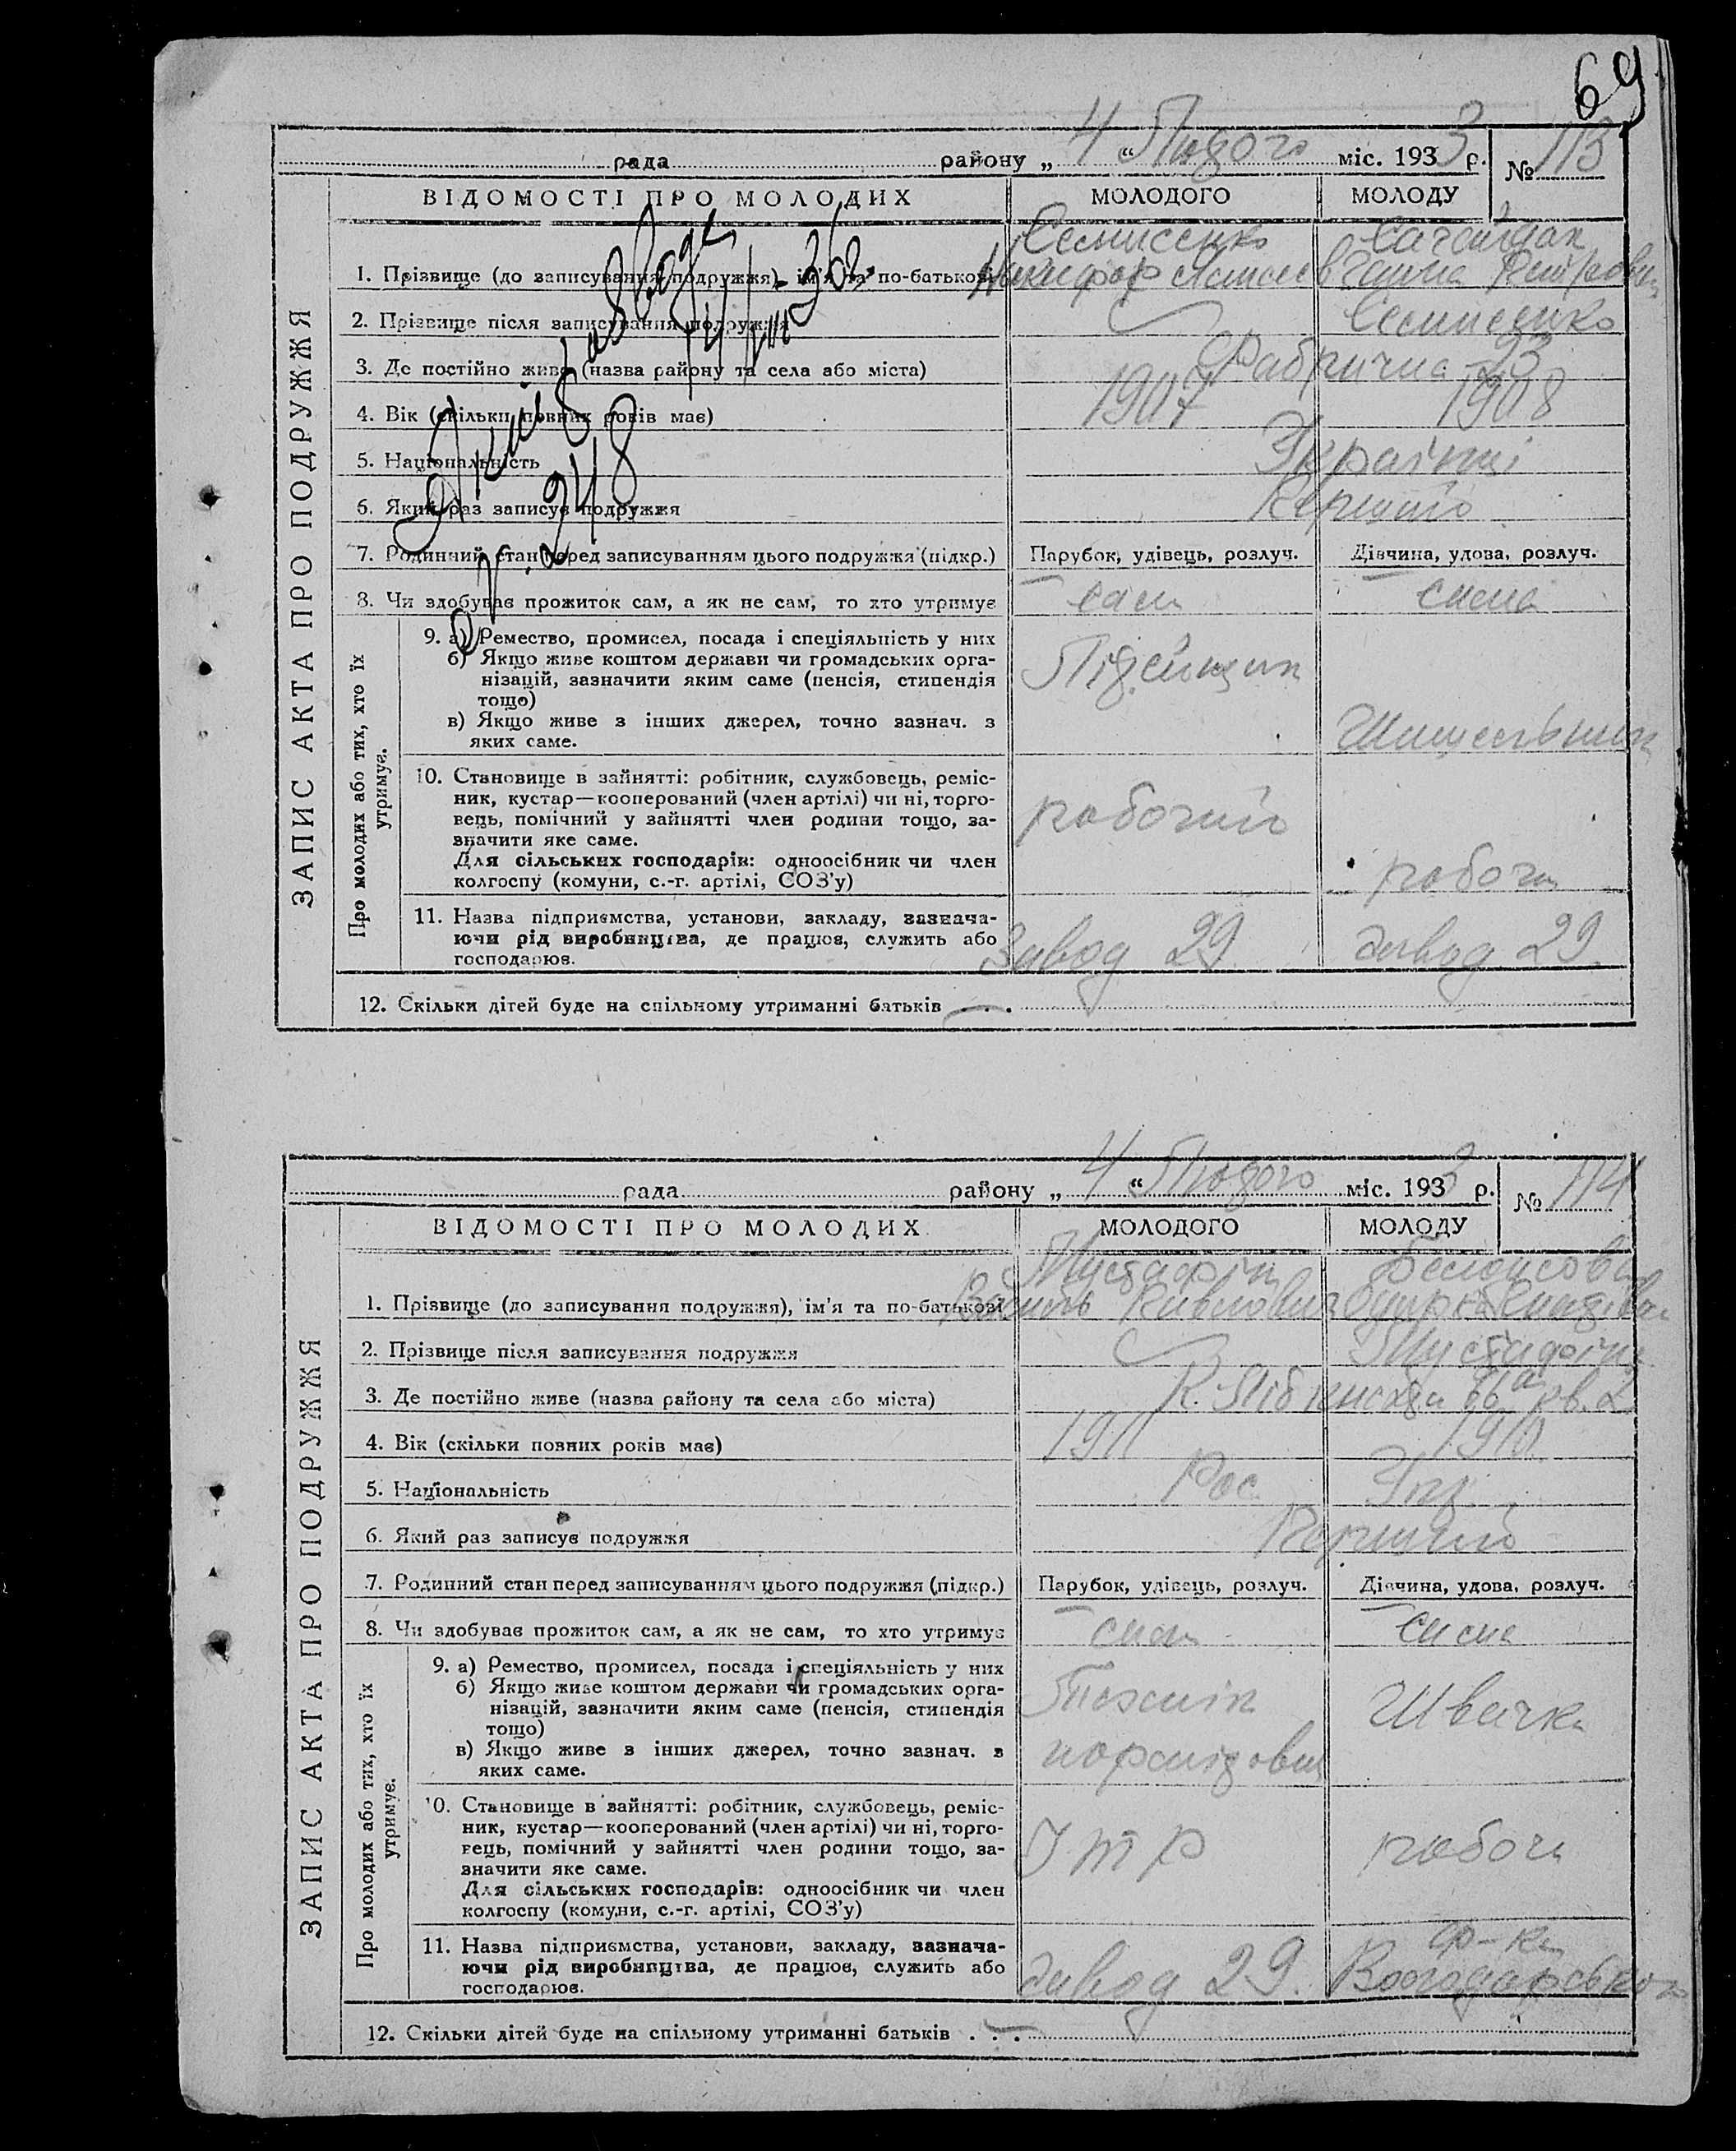 69
рада району „ 4 “ Лютого міс. 1933 р. № 113
ВІДОМОСТІ ПРО МОЛОДИХ МОЛОДОГО МОЛОДУ
ЗАПИС АКТА ПРО ПОДРУЖЖЯ
Семисенко
1. Прізвище (до записування подружжя), ім'я та по-батькові Никифор Ганна Петровн
2. Прізвище після записування подружжя Семисенко
3. Де постійно живе (назва району та села або міста) Фабрична 93
4. Вік (скільки повних років має) 1907 1908
5. Національність Українці
6. Який раз записує подружжя Перший
7. Родинний стан перед записуванням цього подружжя (підкр.) Парубок, удівець, розлуч. Дівчина, удова, розлуч.
8. Чи здобуває прожиток сам, а як не сам, то хто утримує сам сама
Про молодих або тих, хто їх утримує.
9. а) Ремество, промисел, посада і спеціяльність у них
б) Якщо живе коштом держави чи громадських орга-
нізацій, зазначити яким саме (пенсія, стипендія
тощо)
в) Якщо живе з інших джерел, точно зазнач. з
яких саме.
10. Становище в зайнятті: робітник, службовець, реміс-
ник, кустар—кооперований (член артілі) чи ні, торго-
вець, помічний у зайнятті член родини тощо, за-
значити яке саме. робочий
Для сільських господарів: одноосібник чи член
колгоспу (комуни, с.-г. артілі, СОЗ'у) робоч
11. Назва підприємства, установи, закладу, зазнача-
ючи рід виробництва, де працює, служить або Завод 29 завод 29.
господарює.
12. Скільки дітей буде на спільному утриманні батьків . . .
рада району „ 4 “ Лютого міс. 1933 р. № 114
ВІДОМОСТІ ПРО МОЛОДИХ МОЛОДОГО МОЛОДУ
ЗАПИС АКТА ПРО ПОДРУЖЖЯ
Мустафін Белоусова
1. Прізвище (до записування подружжя), ім'я та по-батькові Василь Павлович
2. Прізвище після записування подружжя Мустафіна
3. Де постійно живе (назва району та села або міста) К. Лібкнехта 66а кв. 2
4. Вік (скільки повних років має) 1911 1910
5. Національність Рос. Укр.
6. Який раз записує подружжя Перший
7. Родинний стан перед записуванням цього подружжя (підкр.) Парубок, удівець, розлуч. Дівчина, удова, розлуч.
8. Чи здобуває прожиток сам, а як не сам, то хто утримує сам сама
Про молодих або тих, хто їх утримує.
9. а) Ремество, промисел, посада і спеціяльність у них
б) Якщо живе коштом держави чи громадських орга- Технік Швачка
нізацій, зазначити яким саме (пенсія, стипендія
тощо)
в) Якщо живе з інших джерел, точно зазнач. з
яких саме.
10. Становище в зайнятті: робітник, службовець, реміс-
ник, кустар—кооперований (член артілі) чи ні, торго-
вець, помічний у зайнятті член родини тощо, за- ІТР робоч
значити яке саме.
Для сільських господарів: одноосібник чи член
колгоспу (комуни, с.-г. артілі, СОЗ'у)
11. Назва підприємства, установи, закладу, зазнача- ф-ка
ючи рід виробництва, де працює, служить або завод 29. Володарського
господарює.
12. Скільки дітей буде на спільному утриманні батьків . . .